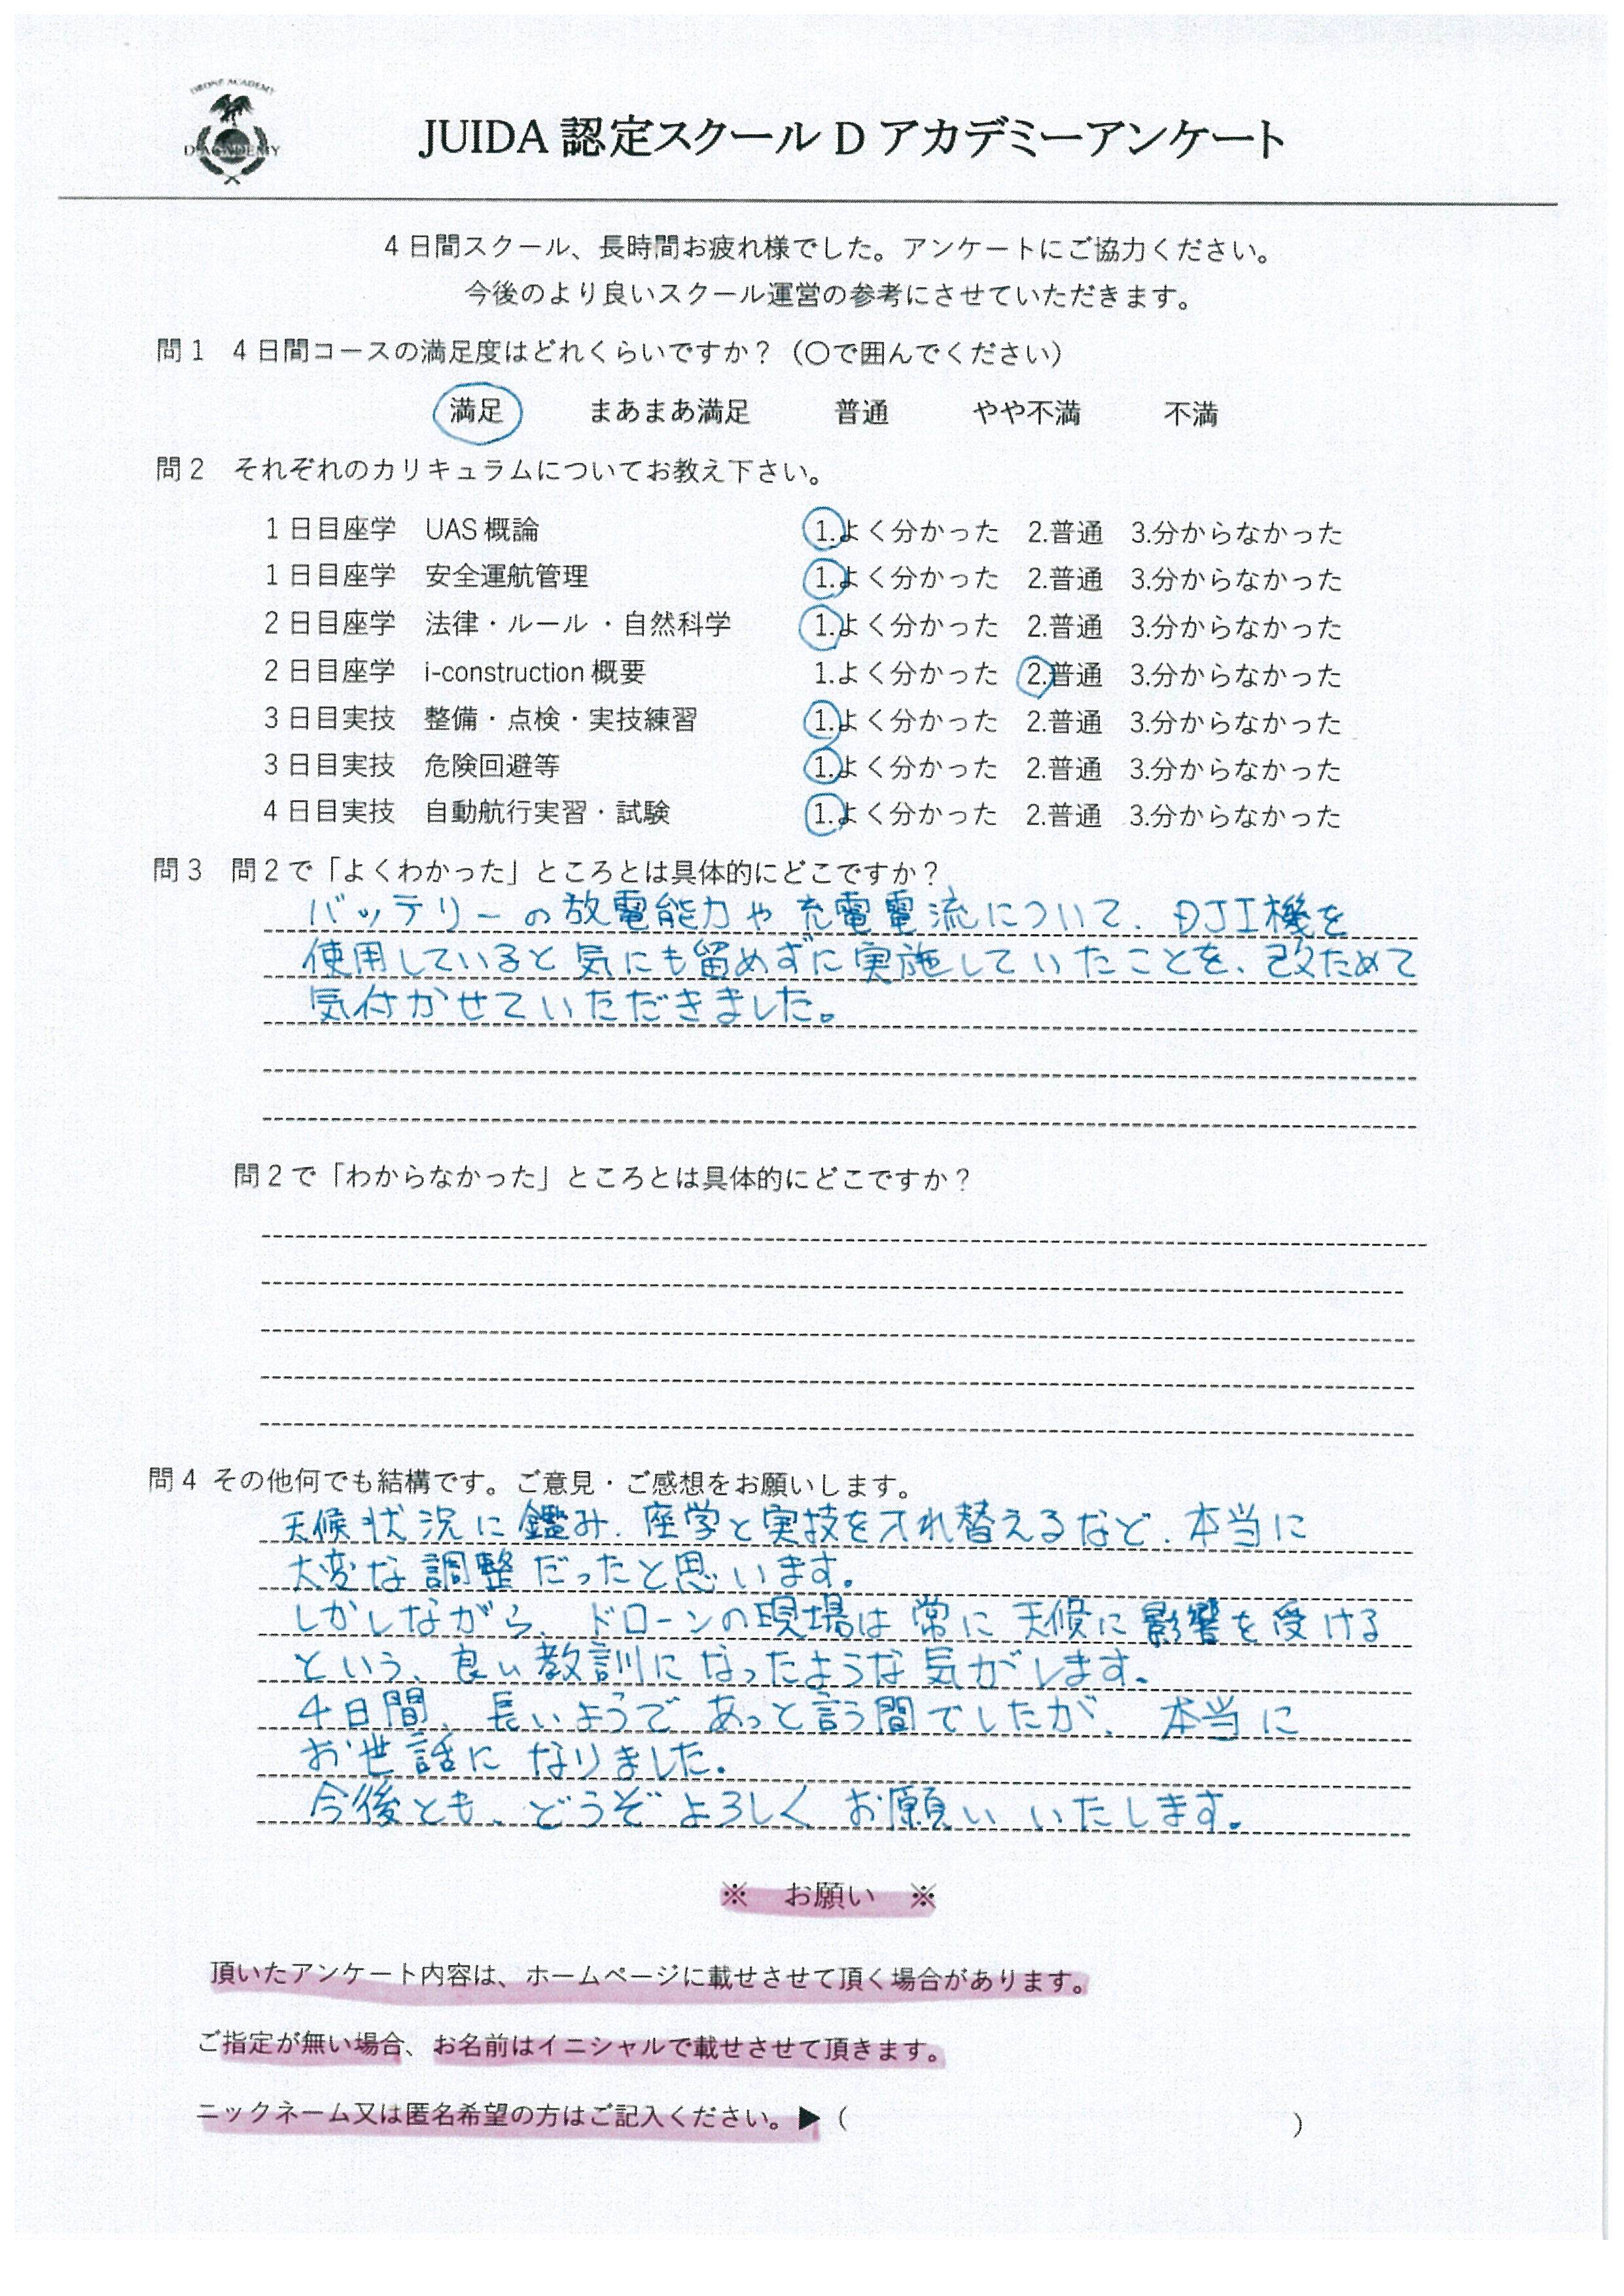 DRONE ACADEMY
D-ACADEMY
JUIDA 認定スクール D アカデミーアンケート
4 日間スクール、長時間お疲れ様でした。アンケートにご協力ください。
今後のより良いスクール運営の参考にさせていただきます。
問 1　4 日間コースの満足度はどれくらいですか？（〇で囲んでください）
満足　まあまあ満足　普通　やや不満　不満
問 2　それぞれのカリキュラムについてお教え下さい。
1 日目座学　UAS 概論　1.よく分かった　2.普通　3.分からなかった
1 日目座学　安全運航管理　1.よく分かった　2.普通　3.分からなかった
2 日目座学　法律・ルール・自然科学　1.よく分かった　2.普通　3.分からなかった
2 日目座学　i-construction 概要　1.よく分かった　2.普通　3.分からなかった
3 日目実技　整備・点検・実技練習　1.よく分かった　2.普通　3.分からなかった
3 日目実技　危険回避等　1.よく分かった　2.普通　3.分からなかった
4 日目実技　自動航行実習・試験　1.よく分かった　2.普通　3.分からなかった
問 3　問 2 で「よくわかった」ところとは具体的にどこですか？
バッテリーの放電能力や充電電流について、DJI機を
使用していると気にも留めずに実施していたことを、改ためて
気付かせていただきました。
問 2 で「わからなかった」ところとは具体的にどこですか？
問 4 その他何でも結構です。ご意見・ご感想をお願いします。
天候状況に鑑み、座学と実技を入れ替えるなど、本当に
大変な調整だったと思います。
しかしながら、ドローンの現場は常に天候に影響を受ける
という、良い教訓になったような気がします。
4日間、長いようであっと言う間でしたが、本当に
お世話になりました。
今後とも、どうぞよろしくお願いいたします。
※　お願い　※
頂いたアンケート内容は、ホームページに載せさせて頂く場合があります。
ご指定が無い場合、お名前はイニシャルで載せさせて頂きます。
ニックネーム又は匿名希望の方はご記入ください。▶（　　　　　　）